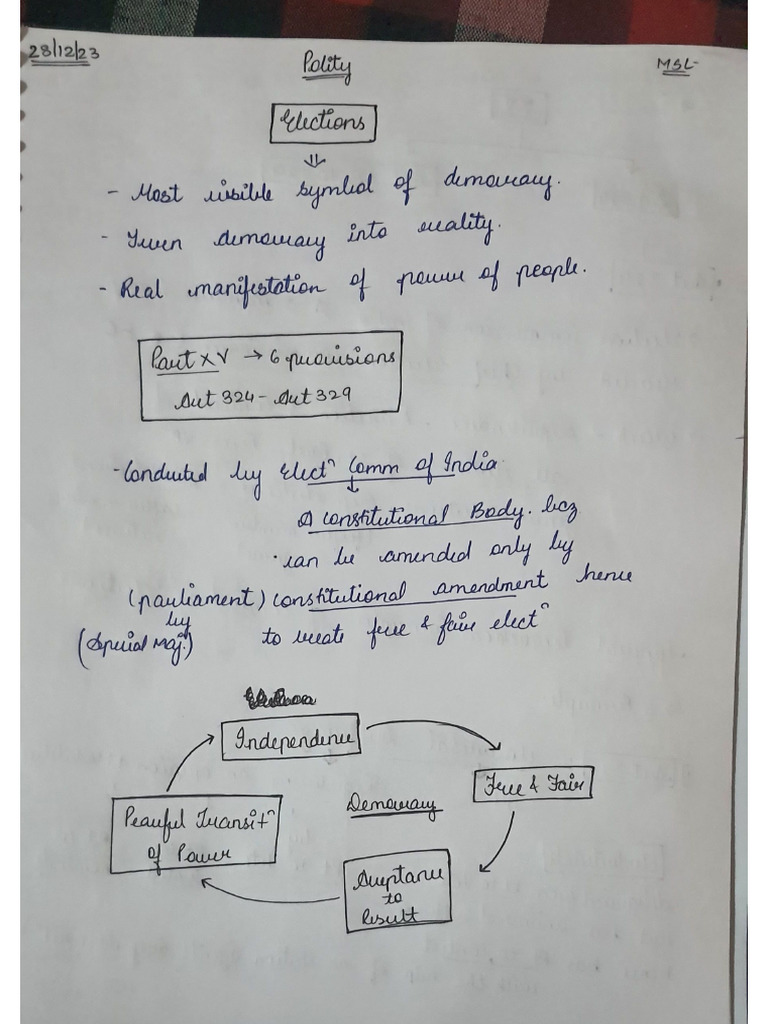 28/12/23
Polity
MSL
Elections
- Most visible symbol of democracy.
- Turn democracy into reality.
- Real manifestation of power of people.
Part XV → 6 provisions
Art 324 - Art 329
- Conducted by Electⁿ Comm of India
A constitutional Body. bcz
• can be amended only by
(parliament) constitutional amendment hence
by
(Special Maj.) to create free & fair electⁿ
Independence
Free & Fair
Democracy
Peaceful Transitⁿ
of Power
Acceptance
to
Result